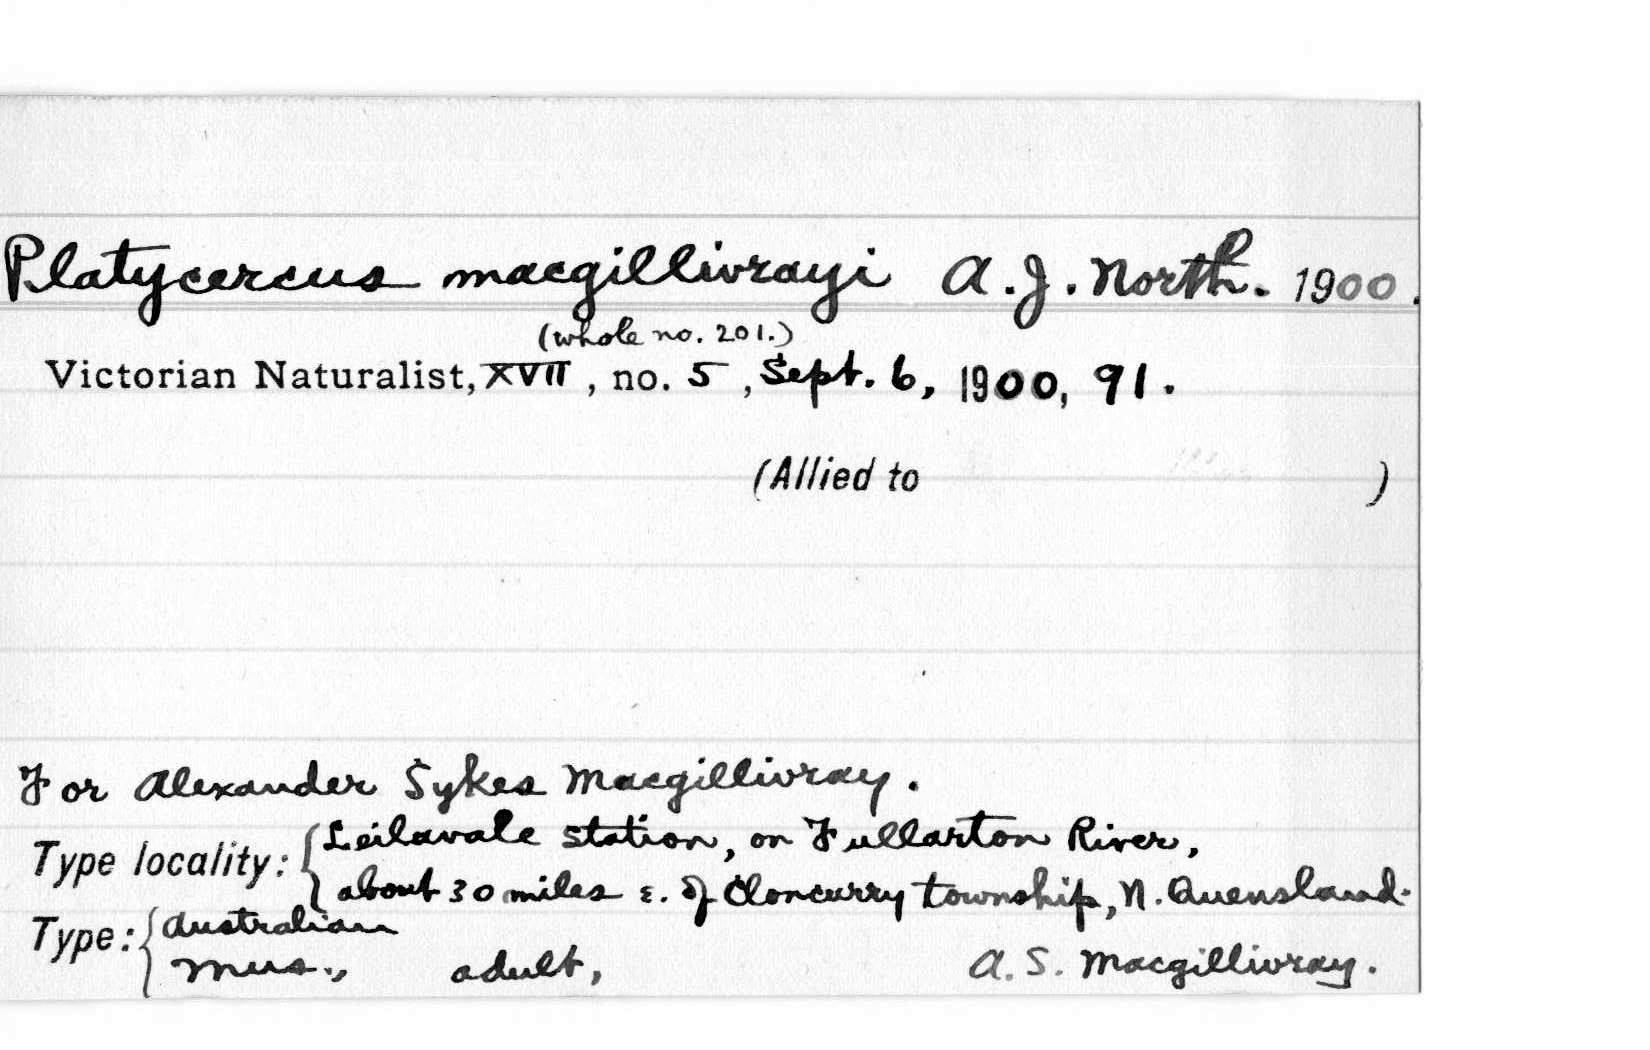 Platycercus macgillivrayi A.J. North. 1900.
(whole no. 201.)
Victorian Naturalist, XVII, no. 5, Sept. 6, 1900, 91.
(Allied to )
For Alexander Sykes Macgillivray.
Type locality: { Leilavale station, on Fullarton River,
about 30 miles E. of Cloncurry township, N. Queensland.
Type: { Australian
Mus., adult, A. S. Macgillivray.